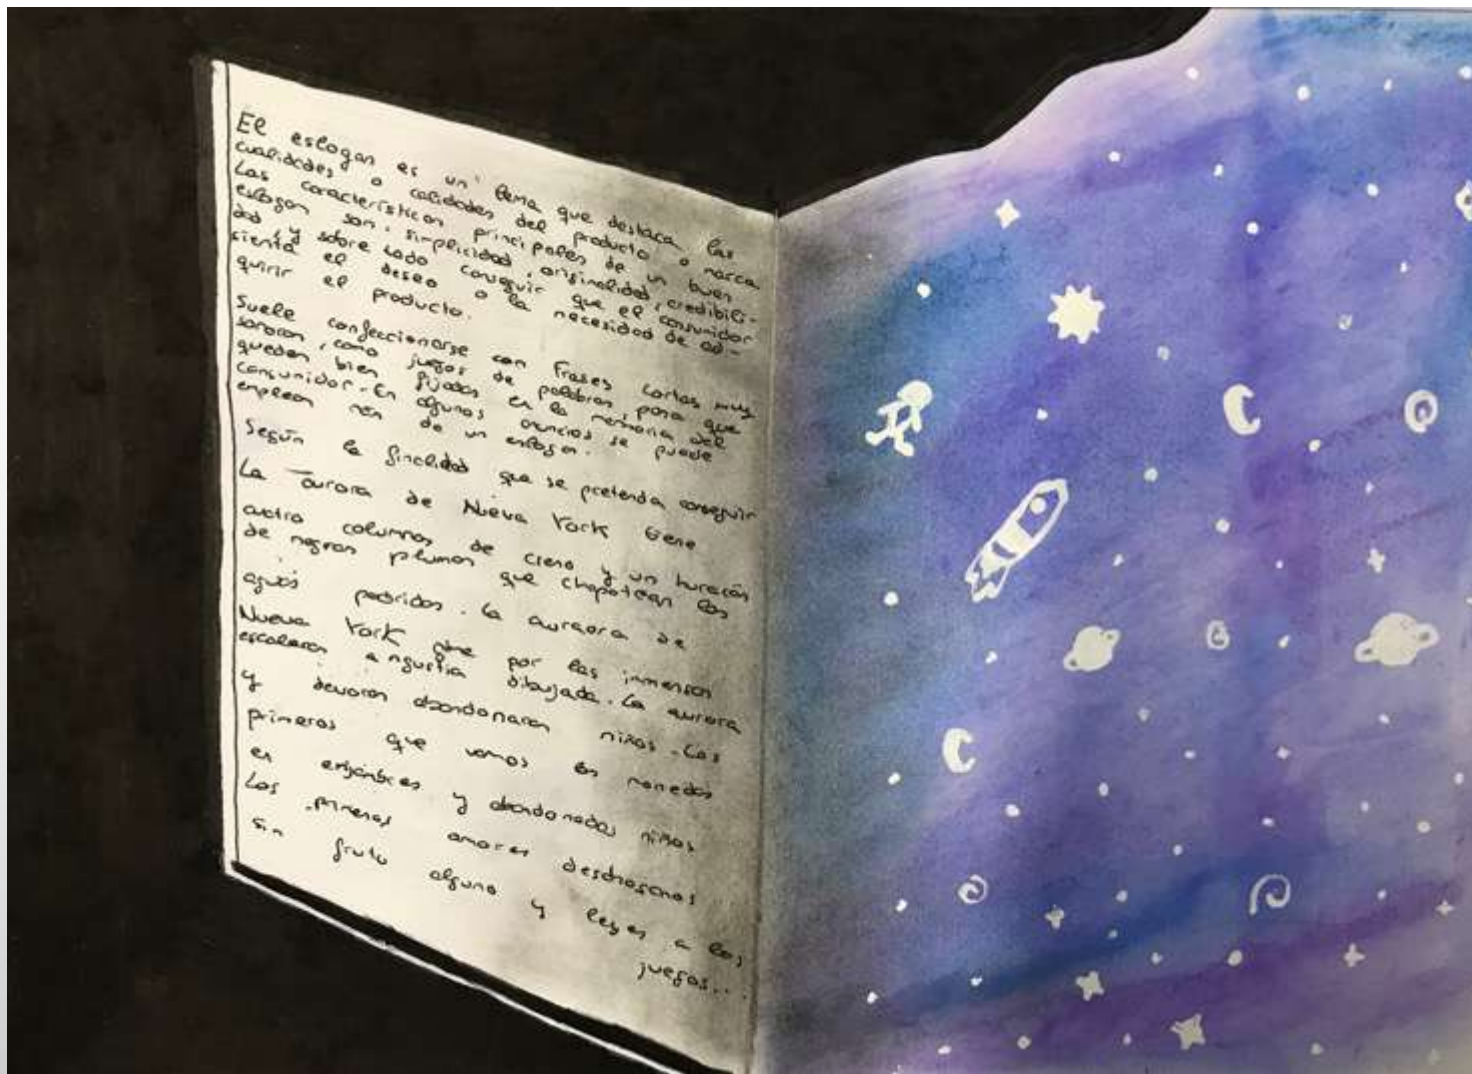 El eslogan es un lema que destaca las
cualidades o calidades del producto o marca
Las características principales de un buen
eslogan son, simplicidad, originalidad, credibili-
dad y sobre todo conseguir que el consumidor
sienta el deseo o la necesidad de ad-
quirir el producto.
Suele confeccionarse con frases cortas muy
sonoras, como juegos de palabras, para que
queden bien fijadas en la memoria del
consumidor. En algunos anuncios se puede
emplean de un eslogan.
Según la finalidad que se pretenda conseguir
La aurora de Nueva York tiene
cuatro columnas de cieno y un huracán
de negras plumas que chapotean las
aguas podridas. La aurora de
Nueva York gime por las inmensas
escaleras angustia dibujada. La aurora
y devoran abandonaran niños. Los
primeros que vamos las monedas
es enjambres y abandonados niños
Los primeros amores deshojanos
sin fruto alguno y leyes a los
juegos...